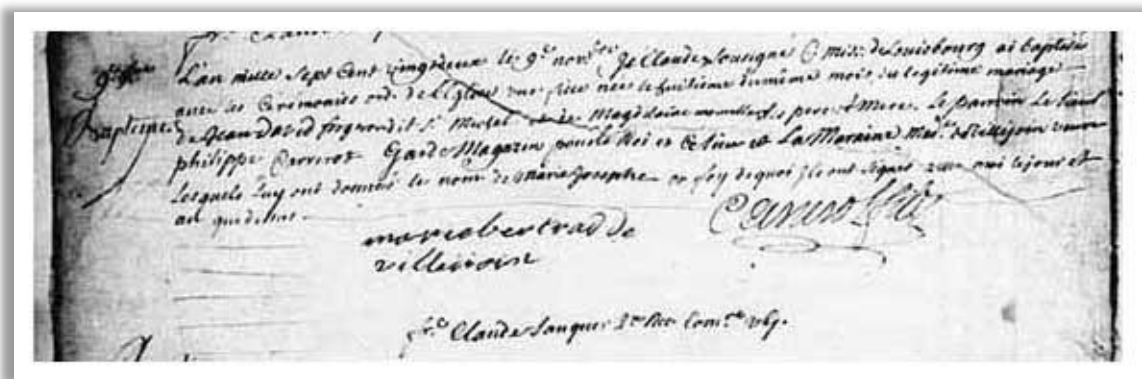 9bre
Baptême
L'an mille sept cent vingt deux le 9e novbre Je Claude Sousigné Comiss. de Louisbourg ai baptisé
avec les Cérémonies ord. de L'Eglise une fille née le huitieme du même mois du legitime mariage
de Jean David forgeron dit St. Michel et de Magdelaine ses pere & Mere. Le parrain Le Sieur
philippe Carrerot Garde Magazin pour le Roi en ce lieu et La Maraine Mad.e de Villejoin veuve
lesquels Luy ont donnés le nom de Marie Josephe en foy de quoi ils ont signés avec moi le jour et
an que dessus.
marie bertrad de
villejoin
Carrerot
fr. Claude Sanquer